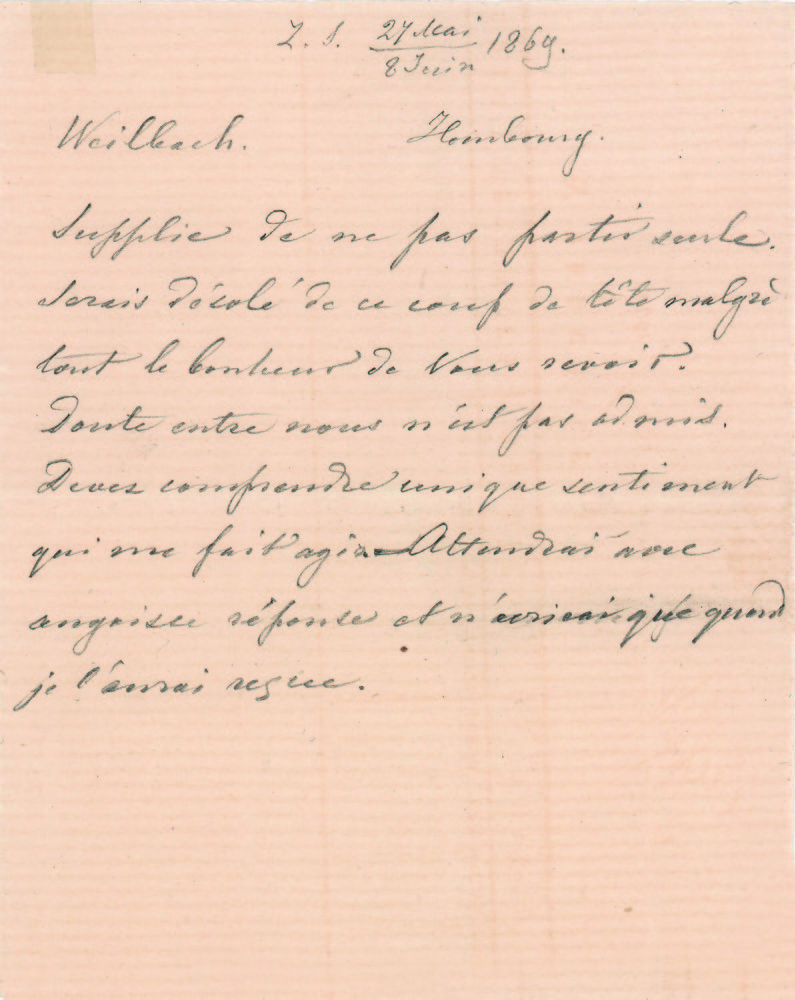 Z. S. 27 Mai / 8 Juin 1869.
Weilbach. Hombourg.
Supplie de ne pas partir seule.
Serais désolé de ce coup de tête malgrè
tout le bonheur de Vous revoir.
Doute entre nous n'est pas admis.
Devez comprendre unique sentiment
qui me fait agir – Attendrai avec
angoisse réponse et n'écrirai que quand
je l'aurai reçue.